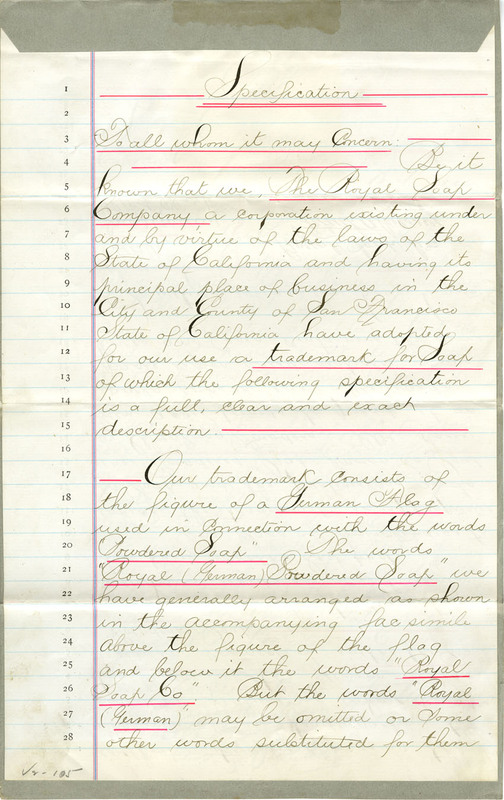 Specification
1
2
3 To all whom it may Concern:
4 Be it
5 known that we, The Royal Soap
6 Company a corporation existing under
7 and by virtue of the laws of the
8 State of California and having its
9 principal place of business in the
10 City and County of San Francisco
11 State of California have adopted
12 for our use a trademark for Soap
13 of which the following specification
14 is a full, clear and exact
15 description.
16
17 Our trademark consists of
18 the figure of a German Flag
19 used in connection with the words
20 Powdered Soap" The words
21 "Royal (German) Powdered Soap" we
22 have generally arranged as shown
23 in the accompanying fac simile
24 above the figure of the flag
25 and below it the words "Royal
26 Soap Co" But the words "Royal
27 (German)" may be omitted or some
28 other words substituted for them
V2-195